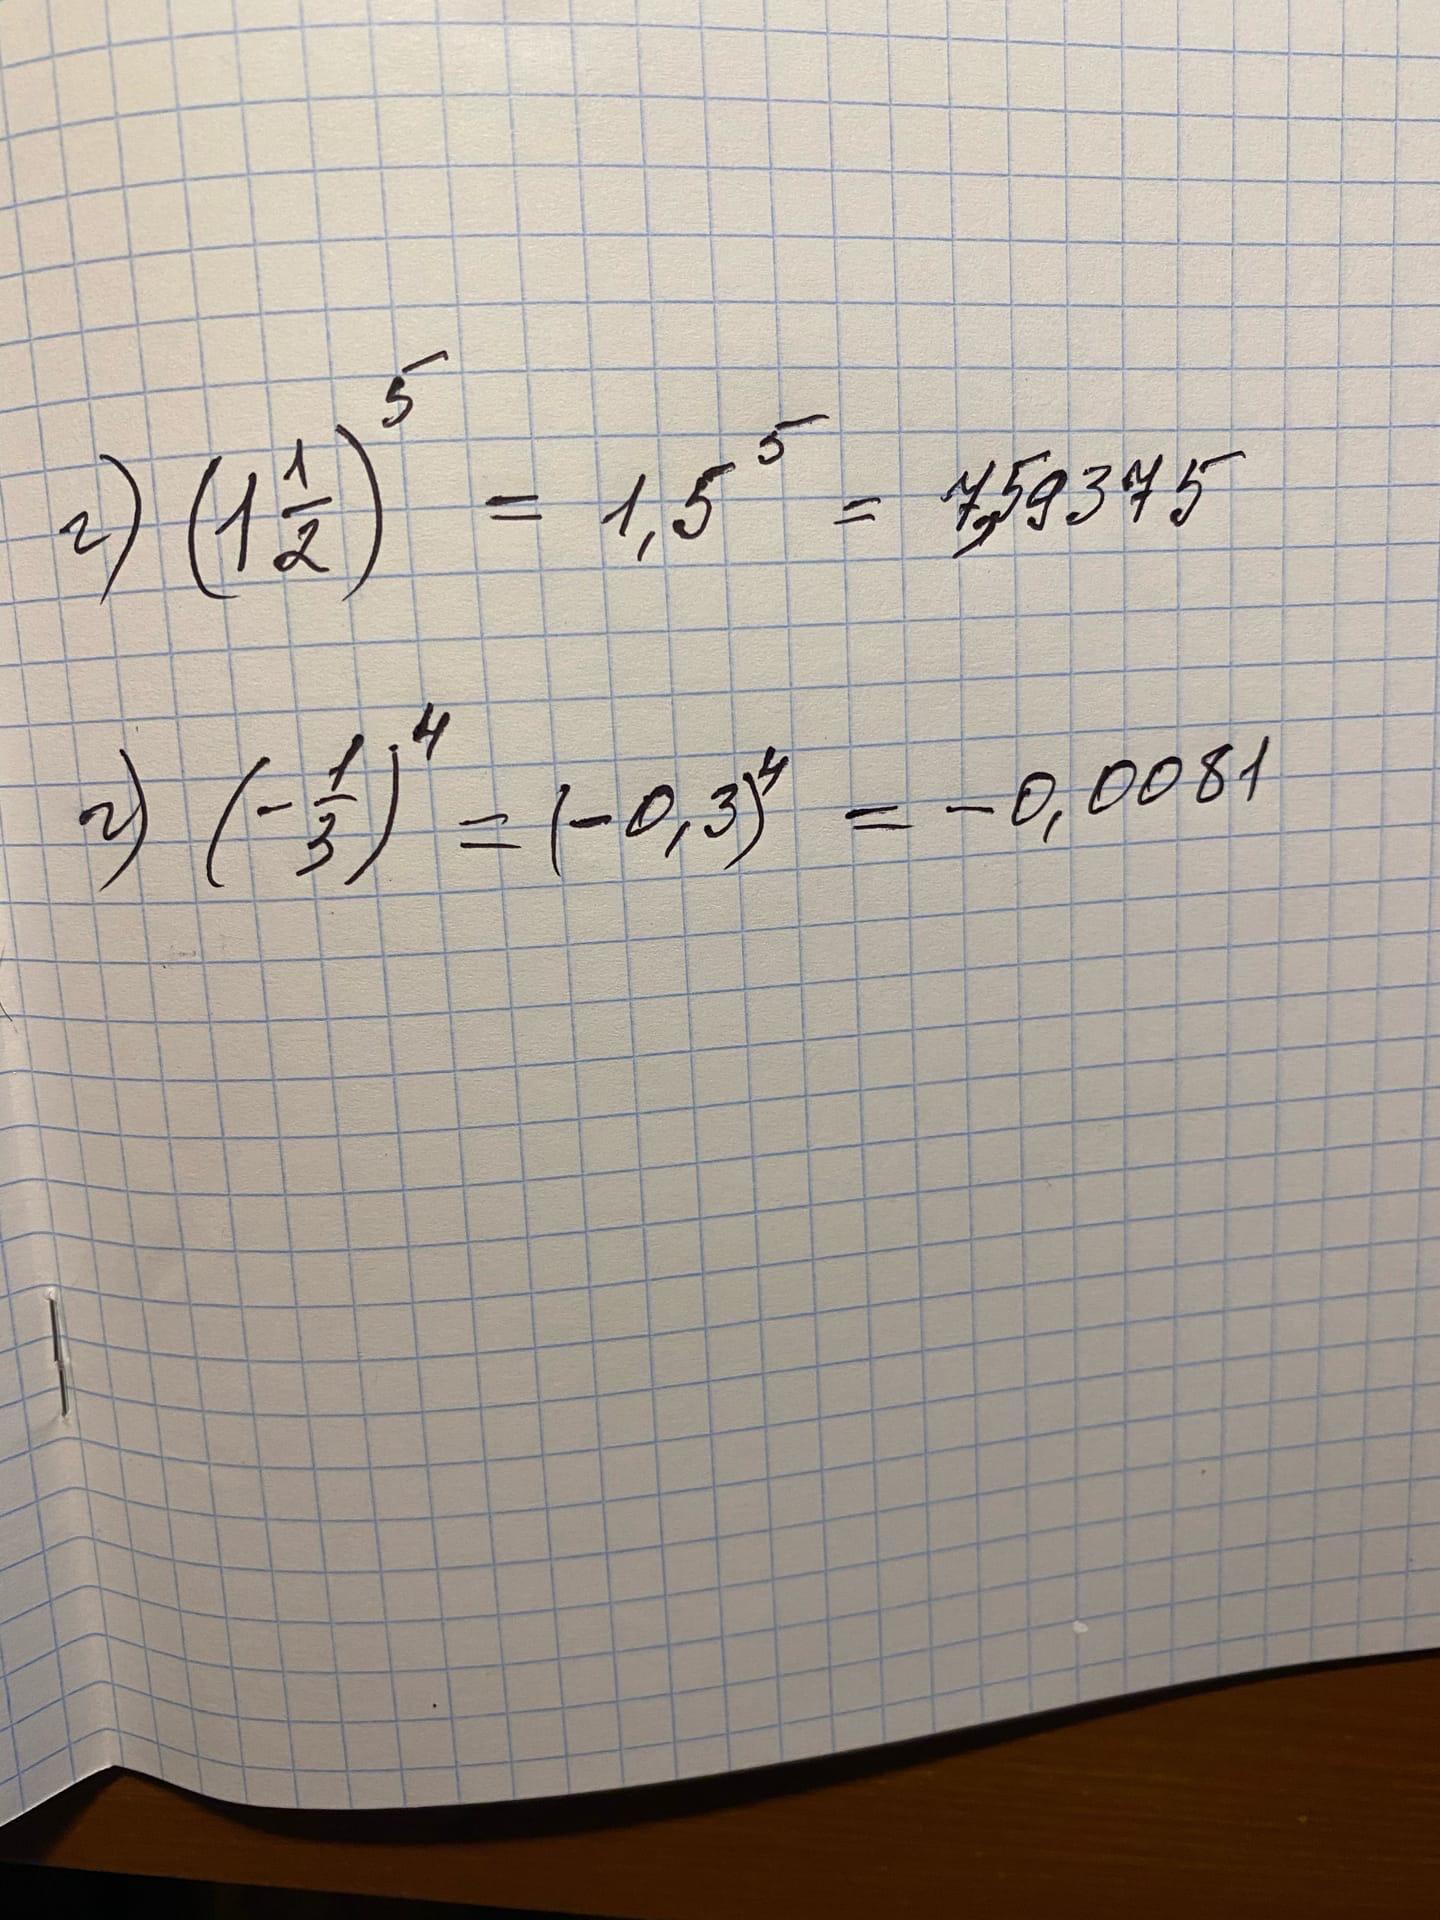 г) (1 1/2)^5 = 1,5^5 = 7,59375
г) (-1/3)^4 = (-0,3)^4 = -0,0081